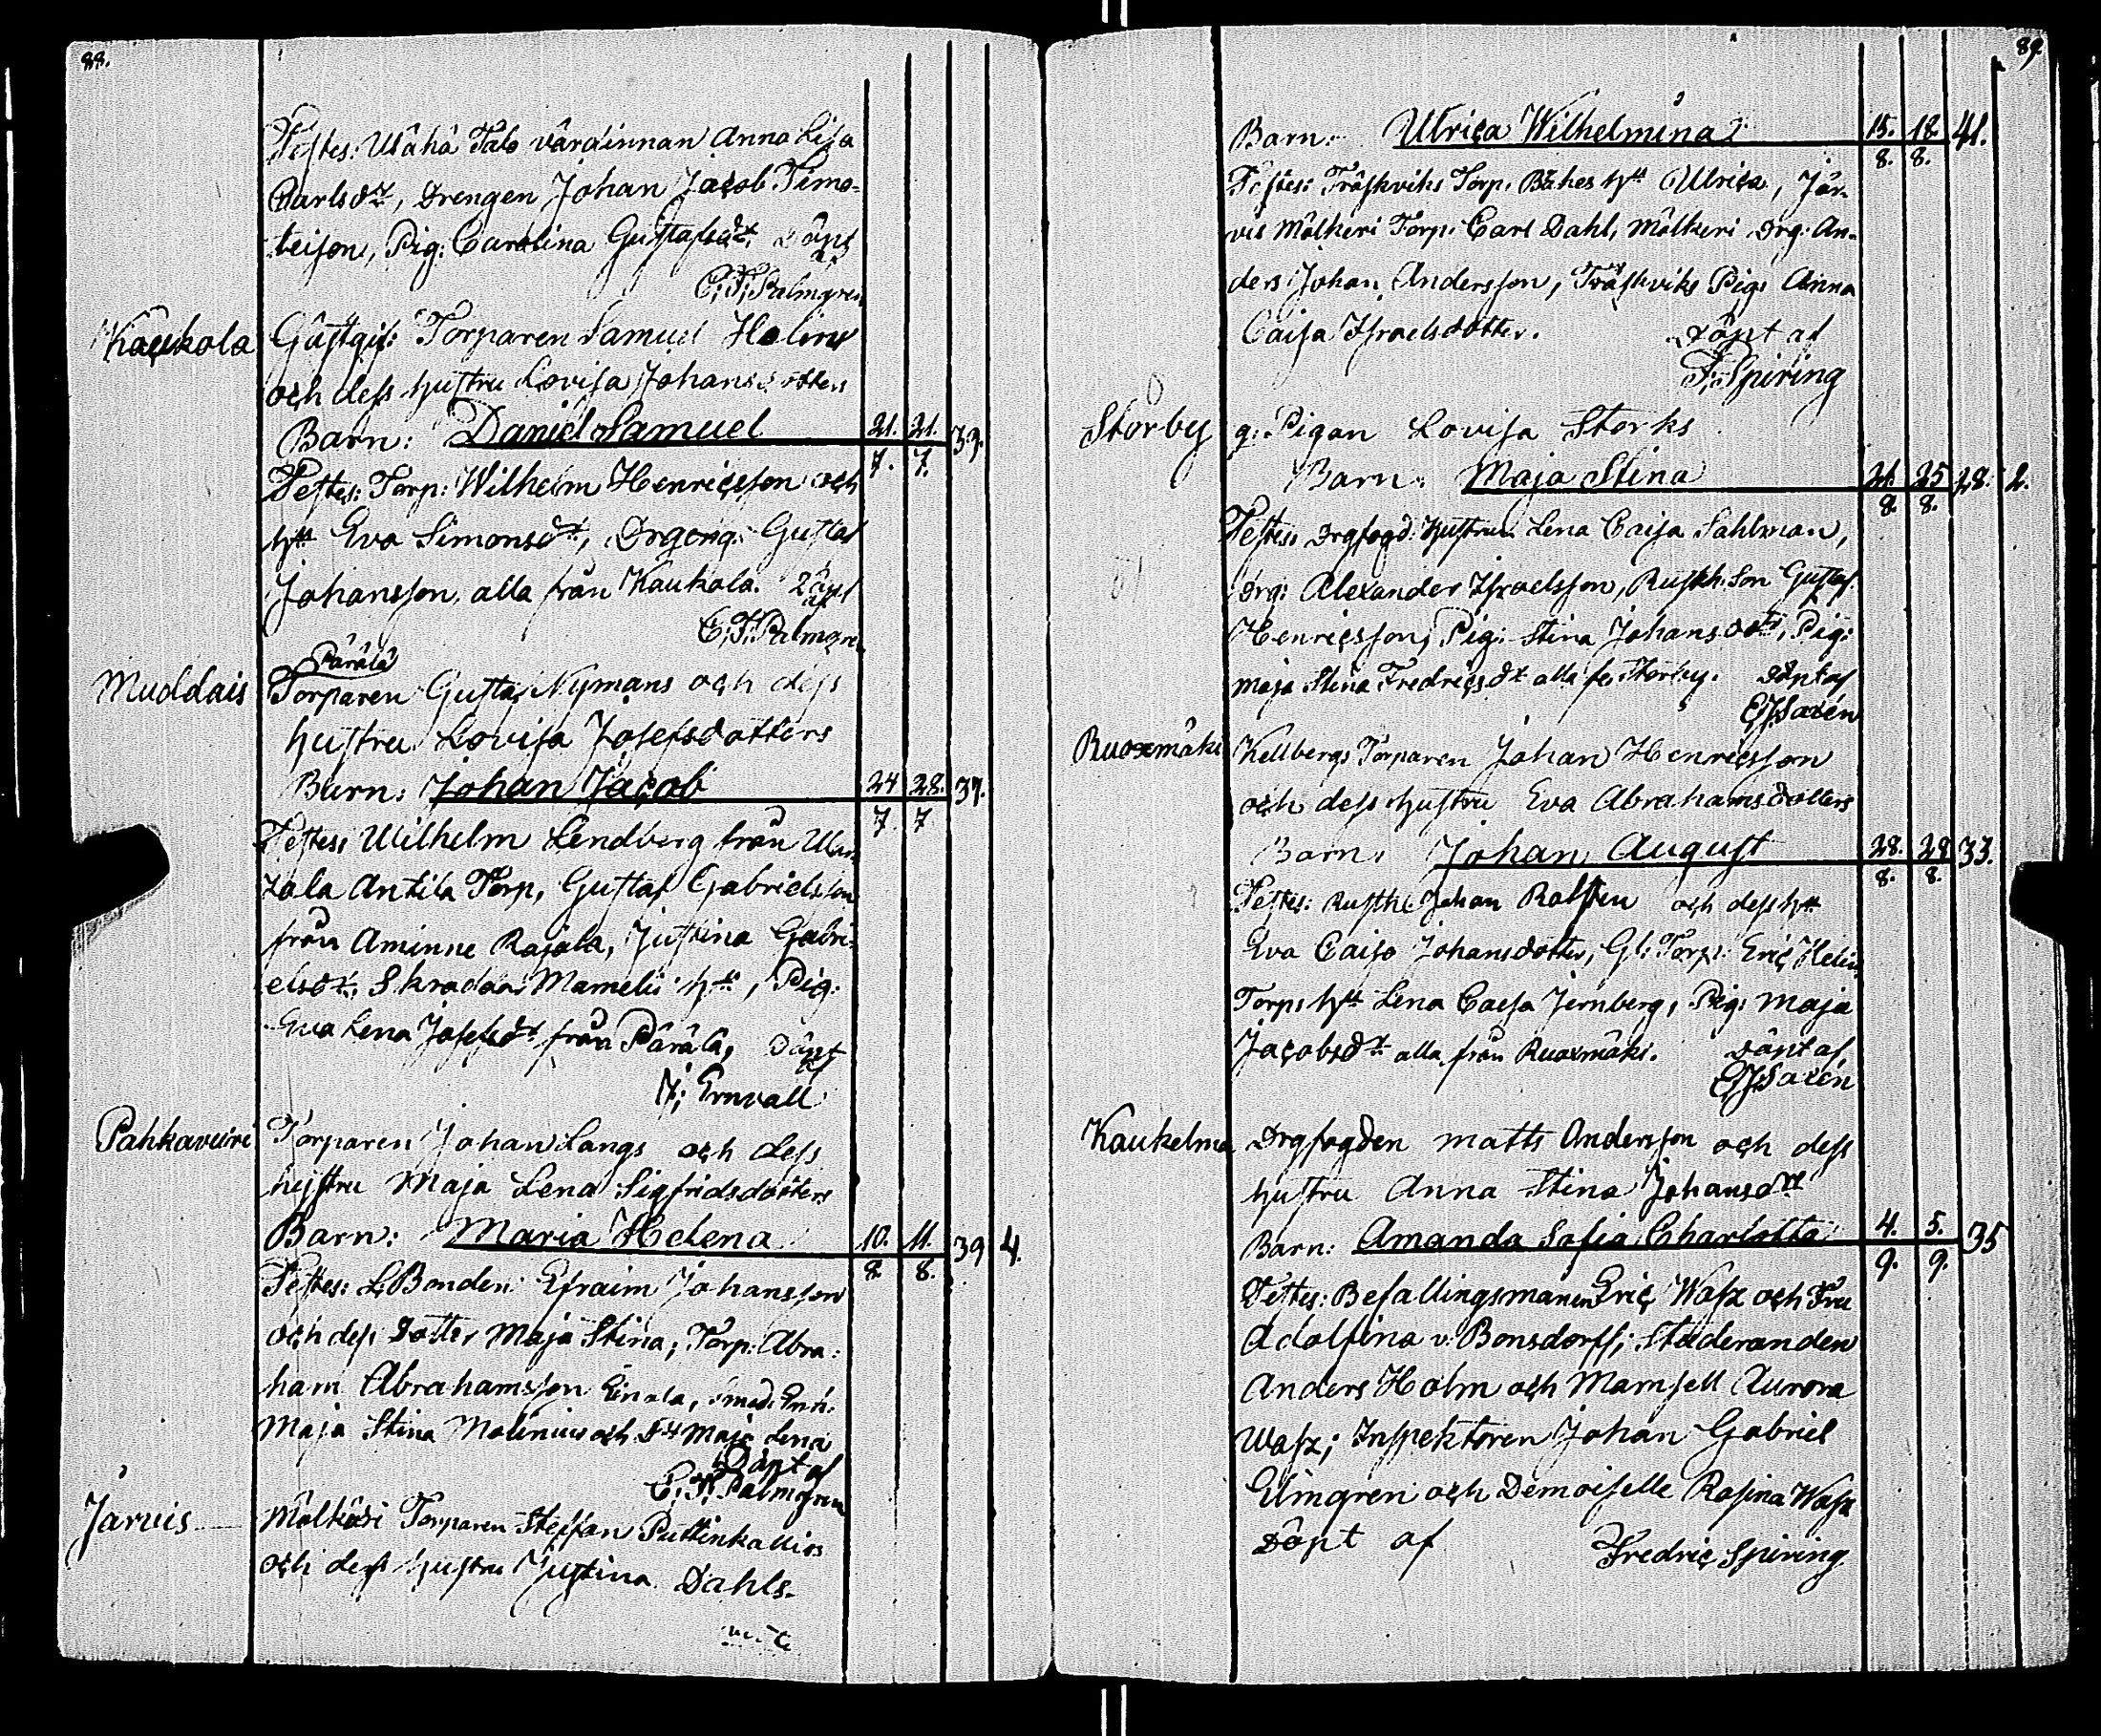 88.
Testes: Uähä Talo värdinnan Anna Lisa
Carlsdr, Drengen Johan Jacob Timo-
teison, Pig: Carolina Gustafsdr, Döpt
af
C. F. Palmgren
Kaukola Gästgif: Torparen Samuel Holins
och dess hustru Lovisa Johansdotters
Barn: Daniel Samuel 21. 21. 39.
7. 7.
Testes: Torp: Wilhelm Henricsson och
htt Eva Simonsdr, Drgeng: Gustaf
Johansson, alla från Kaukola. Döpt
af
C. F. Palmgren
Pärälä
Muddais Torparen Gustaf Nymans och dess
hustru Lovisa Josefsdotters
Barn: Johan Jacob 24 28. 37.
7. 7
Testes: Wilhelm Lendberg från
Antila Torp, Gustaf Gabrielsson
från Aminne Rajala, Justina Gabri-
elsdr, Skraddar Mamelis htt, Pig.
Eva Lena Josefsdr från Pärälä, Döpt
af
J. Ernvall
Pahkavuori Torparen Johan Langs och dess
hustru Maja Lena Sigfridsdotters
Barn: Maria Helena 10. 11. 39 4.
8. 8.
Testes: LBonden Efraim Johansson
och dess Dotter Maja Stina, Torp: Abra:
ham Abrahamsson Einola, Smed. Enk.
Maja Stina Molinius och Maja Lena
Döpt af
C. F. Palmgren
Jarvis Mälkäri Torparen Steffan Puttinkallios
och dess hustru Justina Dahls.
89
Barn: Ulrica Wilhelmina 15. 18. 41.
8. 8.
Testes: Träskviks Torp. Bäkes htt Ulrica, Jär-
vis Mälkeri Torp: Carl Dahl, Mälkeri Drg: An-
ders Johan Andersson, Träskviks Pig: Anna
Caisa Israelsdotter. Döpt af
F. Spiring
Storby g: Pigan Lovisa Storks
Barn: Maja Stina 21. 25 28. 2.
8. 8.
Testes: Drgfogd: Hustrun Lena Caisa Sahlman,
Drg: Alexander Israelsson, Rusth: Son Gustaf
Henricsson, Pig: Stina Johansdotr, Pig:
Maja Stina Fredricsdr alla fr Storby. Döpt af
EJSaxén
Ruoxmäki Kellbergs Torparen Johan Henricsson
och dess hustru Eva Abrahamsdotters
Barn: Johan August 28. 28 33.
8. 8.
Testes: Rusth: Johan Ralsten och dess htt
Eva Caisa Johansdotter, Gl: Torp: Eric Helin
Torp: htt Lena Caisa Jernberg, Pig: Maja
Jacobsdr alla från Ruoxmäki. Döpt af
EJSaxén
Kaukelma Drgfogden Matts Andersson och dess
hustru Anna Stina Johansdr
Barn: Amanda Sofia Charlotta 4. 5. 35
9. 9.
Testes: Befallingsmannen Eric Wasz och Fru
Adolfina v. Bonsdorff; Studeranden
Anders Holm och Mamsell Aurora
Wasz; Inspektoren Johan Gabriel
Elmgren och Demoiselle Rosina Wasz
Döpt af Fredric Spiring